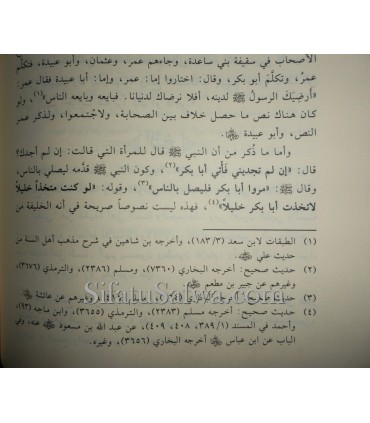 الأصحاب في سقيفة بني ساعدة، وجاءهم عمر، وعثمان، وأبو عبيدة، فتكلم
عمر، وتكلّم أبو بكر، وقال: اختاروا إما: عمر، وإما: أبا عبيدة فقال عمر:
«أرضيك الرسول ﷺ لدينه، أفلا نرضاك لدنيانا. فبايعه وبايعه الناس»(١)، ولو
كان هناك نص ما حصل خلاف بين الصحابة، ولاجتمعوا، ولذكر عمر
النص، وأبو عبيدة
وأما ما ذُكر من أن النبي ﷺ قال للمرأة التي قالت: إن لم أجدك؟
قال: «إن لم تجديني فأتي أبا بكر»(٢)، وكون النبي ﷺ قدّمه ليصلي بالناس،
وقال ﷺ: «مروا أبا بكر فليصل بالناس»(٣)، وقوله: «لو كنت متخذاً خليلاً
لاتخذت أبا بكر خليلاً»(٤)، فهذه ليست نصوصاً صريحة في أنه الخليفة من
(١) الطبقات لابن سعد (١٨٣/٣)، وأخرجه بن شاهين في شرح مذهب أهل السنة من
حديث علي
(٢) حديث صحيح: أخرجه البخاري (٧٣٦٠)، ومسلم (٢٣٨٦)، والترمذي (٣٦٧٦)
وغيرهم عن جبير بن مطعم
(٣) حديث صحيح: أخرجه البخاري وغيرهم عن عائشة
(٤) حديث صحيح: أخرجه مسلم (٢٣٨٣)، والترمذي (٣٦٥٥)، وابن ماجه (٩٣)،
وأحمد في المسند (٣٨٩/١، ٤٠٨، ٤٠٩)، عن عبد الله بن مسعود عنه، وفي
الباب عن ابن عباس أخرجه البخاري (٣٦٥٦)، وغيره.